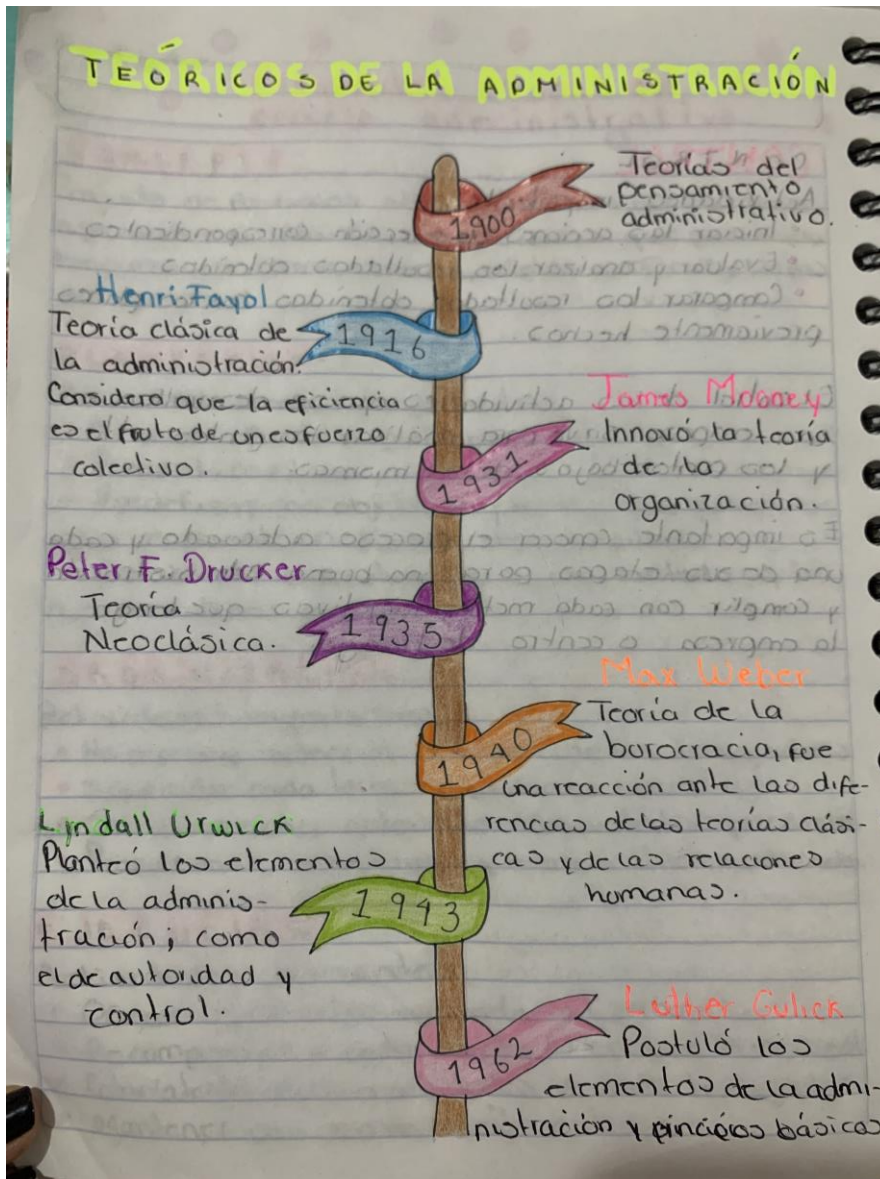 TEÓRICOS DE LA ADMINISTRACIÓN
1900
Teorías del
pensamiento
administrativo.
Henri Fayol
1916
Teoría clásica de
la administración.
Considero que la eficiencia
es el fruto de un esfuerzo
colectivo.
James Mooney
1931
Innovó la teoría
de la
organización.
Peter F. Drucker
1935
Teoría
Neoclásica.
Max Weber
1940
Teoría de la
burocracia, fue
una reacción ante las dife-
rencias de las teorías clási-
cas y de las relaciones
humanas.
Lyndall Urwick
1943
Planteó los elementos
de la adminis-
tración; como
el de autoridad y
control.
Luther Gulick
1962
Postuló los
elementos de la admi-
nistración y pincipios básicos